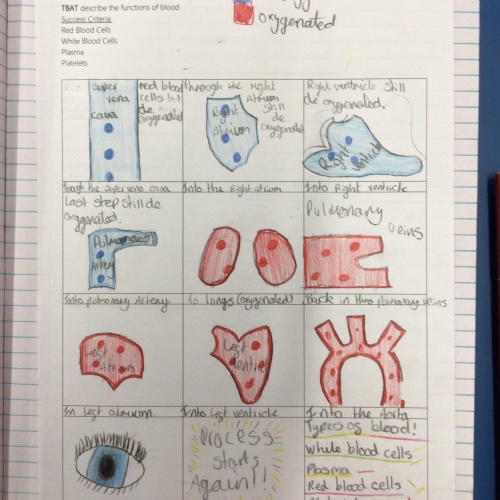 TBAT describe the functions of blood
Success Criteria:
Red Blood Cells
White Blood Cells
Plasma
Platelets
oxygenated
Super
vena
cava
red blood
cells
de
oxygenated
through the right
Atrium
still
de
oxygenated
Right
Atrium
Right ventricle still
de oxygenated.
Right
ventricle
Though the super vena cava
Into the Right atrium
Into Right ventricle
Last step still de
oxygenated.
Pulmonary
Artery
Pulmonary
veins
Into pulmonary Artery
To Longs (oxygenated)
Back in thro pulmonary veins
Left
Atrium
Left
ventricle
In left atrium.
Into left ventricle
Into the Aorta
Process
starts
Again!!
Types of blood!
Whole blood cells
Plasma
Red blood cells